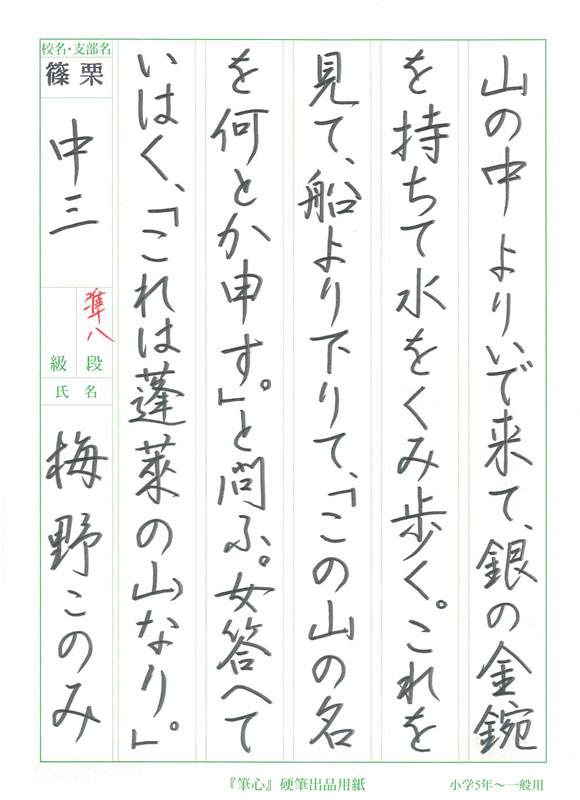 山の中よりいで来て、銀の金鋺
を持ちて水をくみ歩く。これを
見て、船より下りて、「この山の名
を何とか申す。」と問ふ。女答へて
いはく、「これは蓬萊の山なり。」
校名・支部名
篠栗
中三
準八
段
級
氏名
梅野このみ
『筆心』硬筆出品用紙
小学5年～一般用